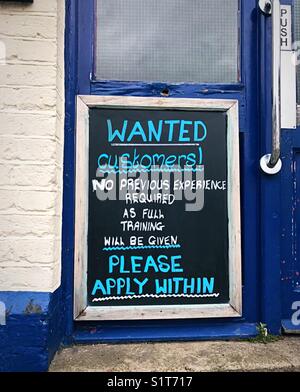 PUSH
WANTED
customers!
NO PREVIOUS EXPERIENCE
REQUIRED
AS FULL
TRAINING
WILL BE GIVEN
PLEASE
APPLY WITHIN
alamy
Image ID: S1T717
www.alamy.com